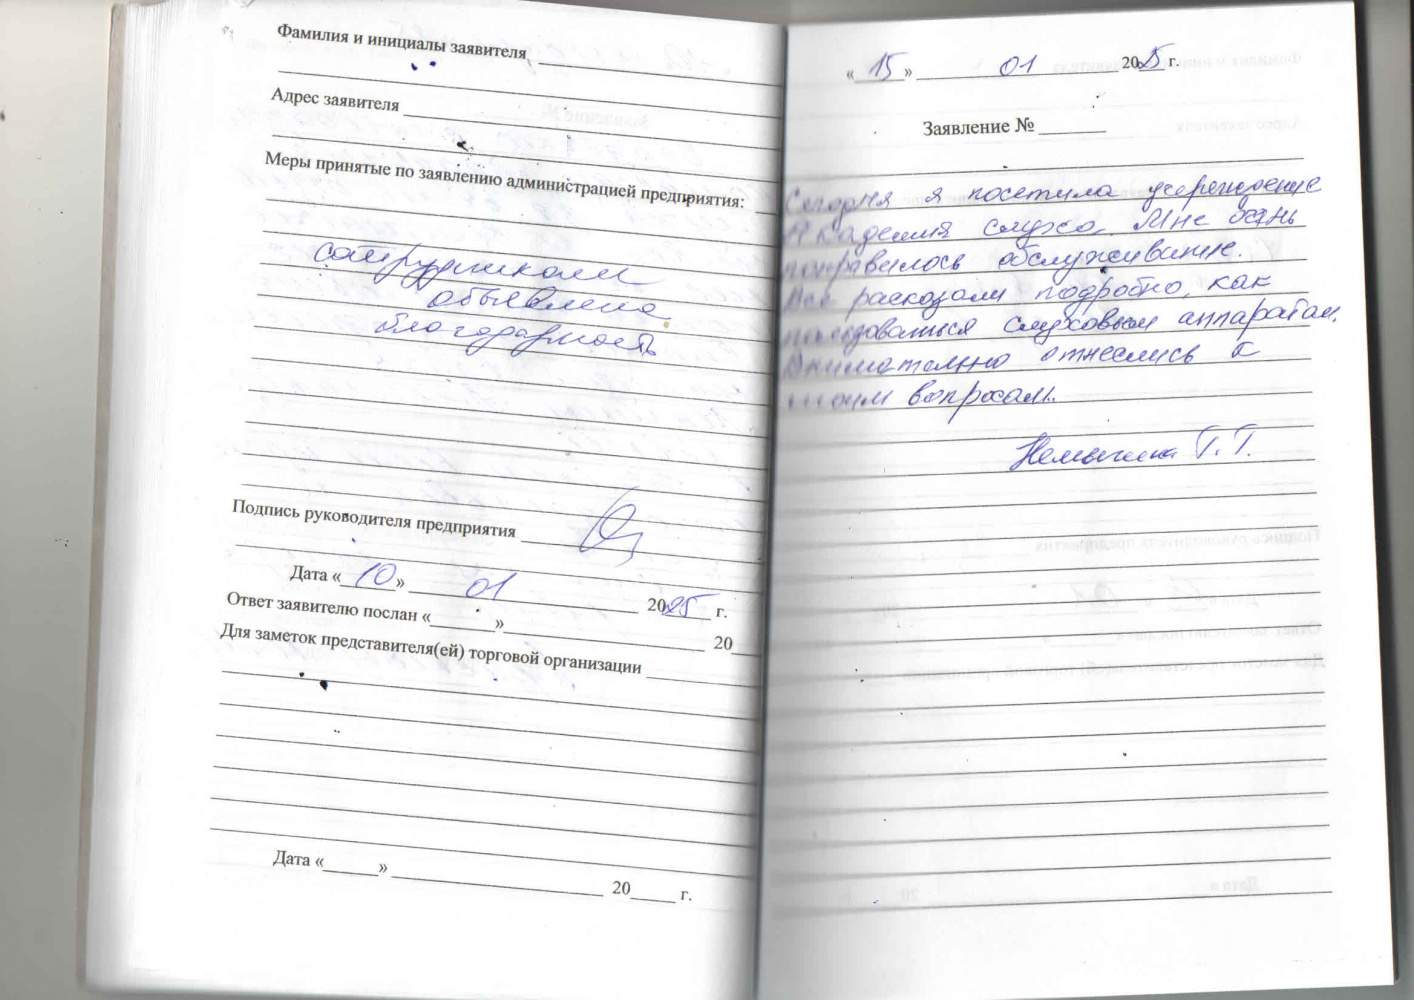 Фамилия и инициалы заявителя,
Адрес заявителя
Меры принятые по заявлению администрацией предприятия:
сотрудниками
объявлена
благодарность
Подпись руководителя предприятия
Дата «10» 01 2025 г.
Ответ заявителю послан «____» ____ 20__
Для заметок представителя(ей) торговой организации
Дата «____» ____ 20__ г.
«15» 01 2025 г.
Заявление №
Сегодня я посетила учереждение
Академия слуха. Мне очень
понравилось обслуживание.
Все расказали подробно, как
пользоваться слуховым аппаратам.
Внимательно отнеслись к
моим вопросам.
Т. Т.